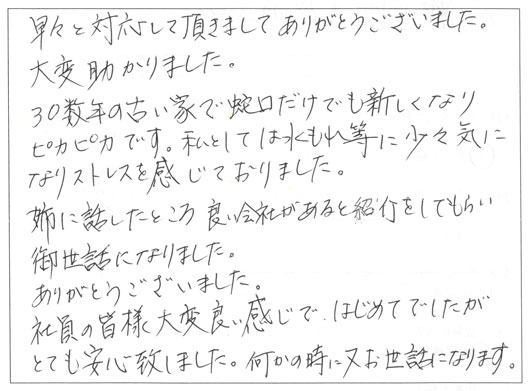 早々と対応して頂きましてありがとうございました。
大変助かりました。
30数年の古い家で蛇口だけでも新しくなり
ピカピカです。私としては水もれ等に少々気に
なりストレスを感じておりました。
姉に話したところ良い会社があると紹介をしてもらい
御世話になりました。
ありがとうございました。
社員の皆様大変良い感じで、はじめてでしたが
とても安心致しました。何かの時に又お世話になります。